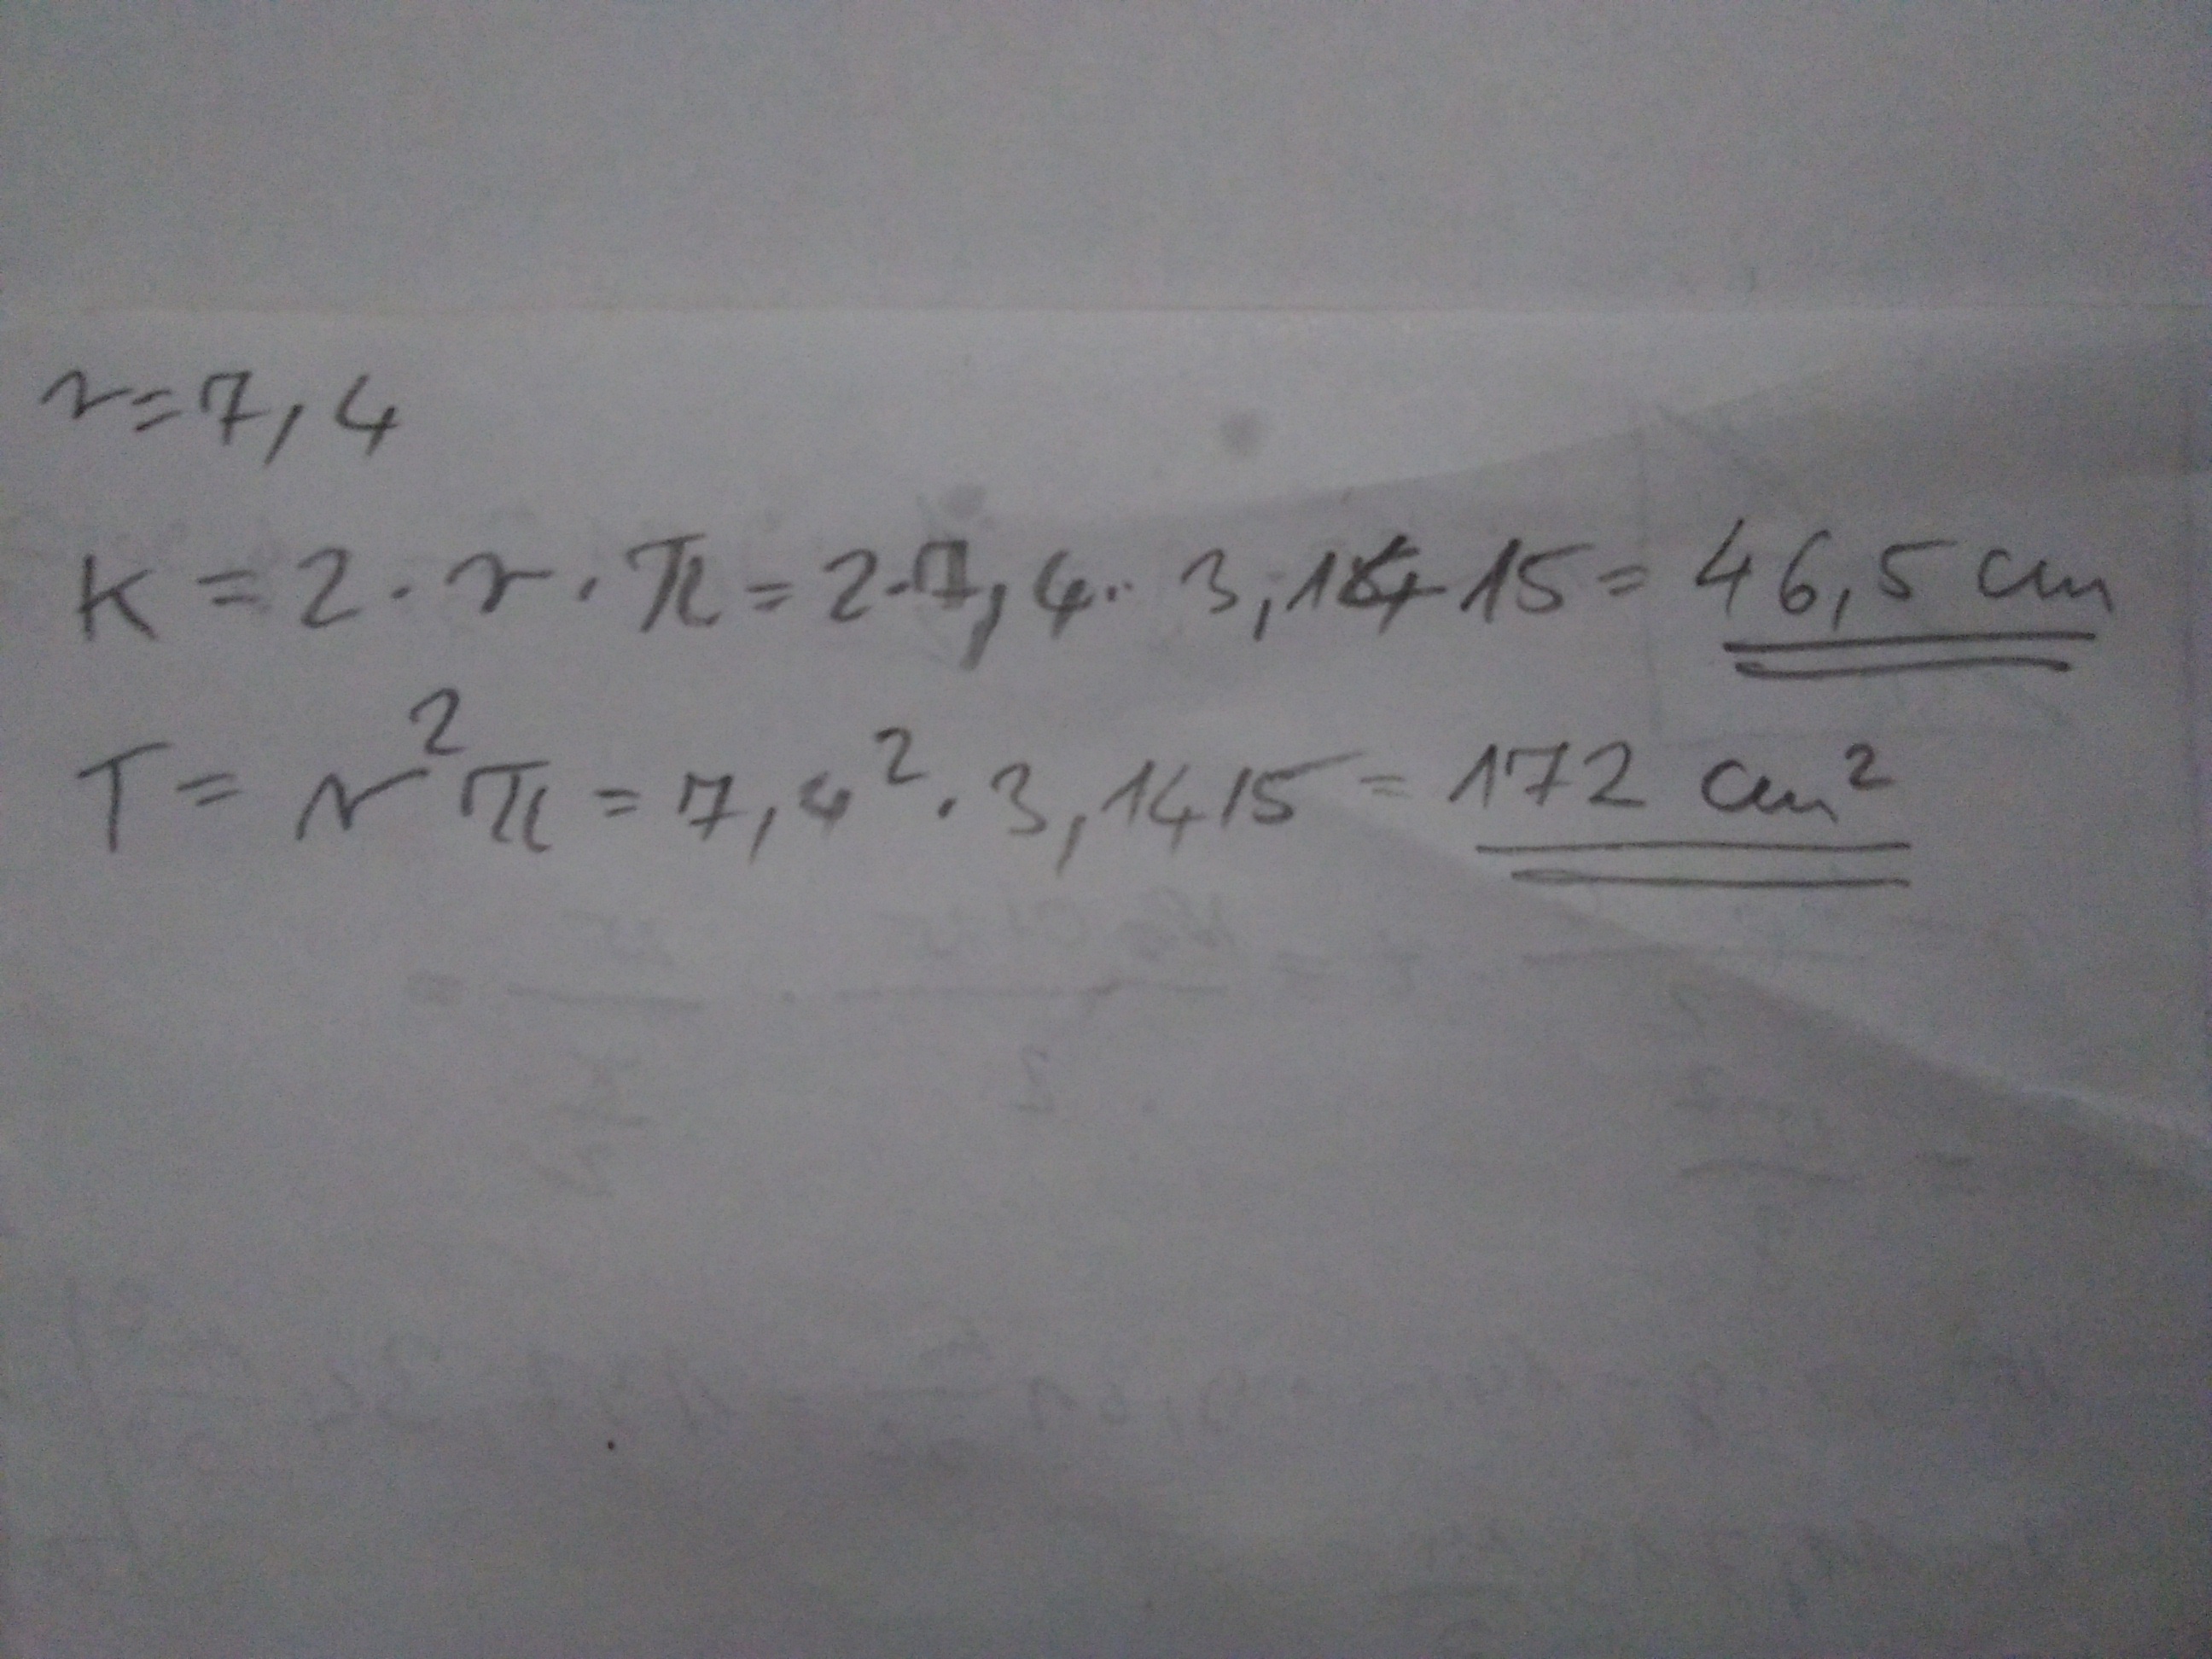 r=7,4
K = 2 · r · π = 2·7,4 · 3,1415 = 46,5 cm
T = r²π = 7,4² · 3,1415 = 172 cm²